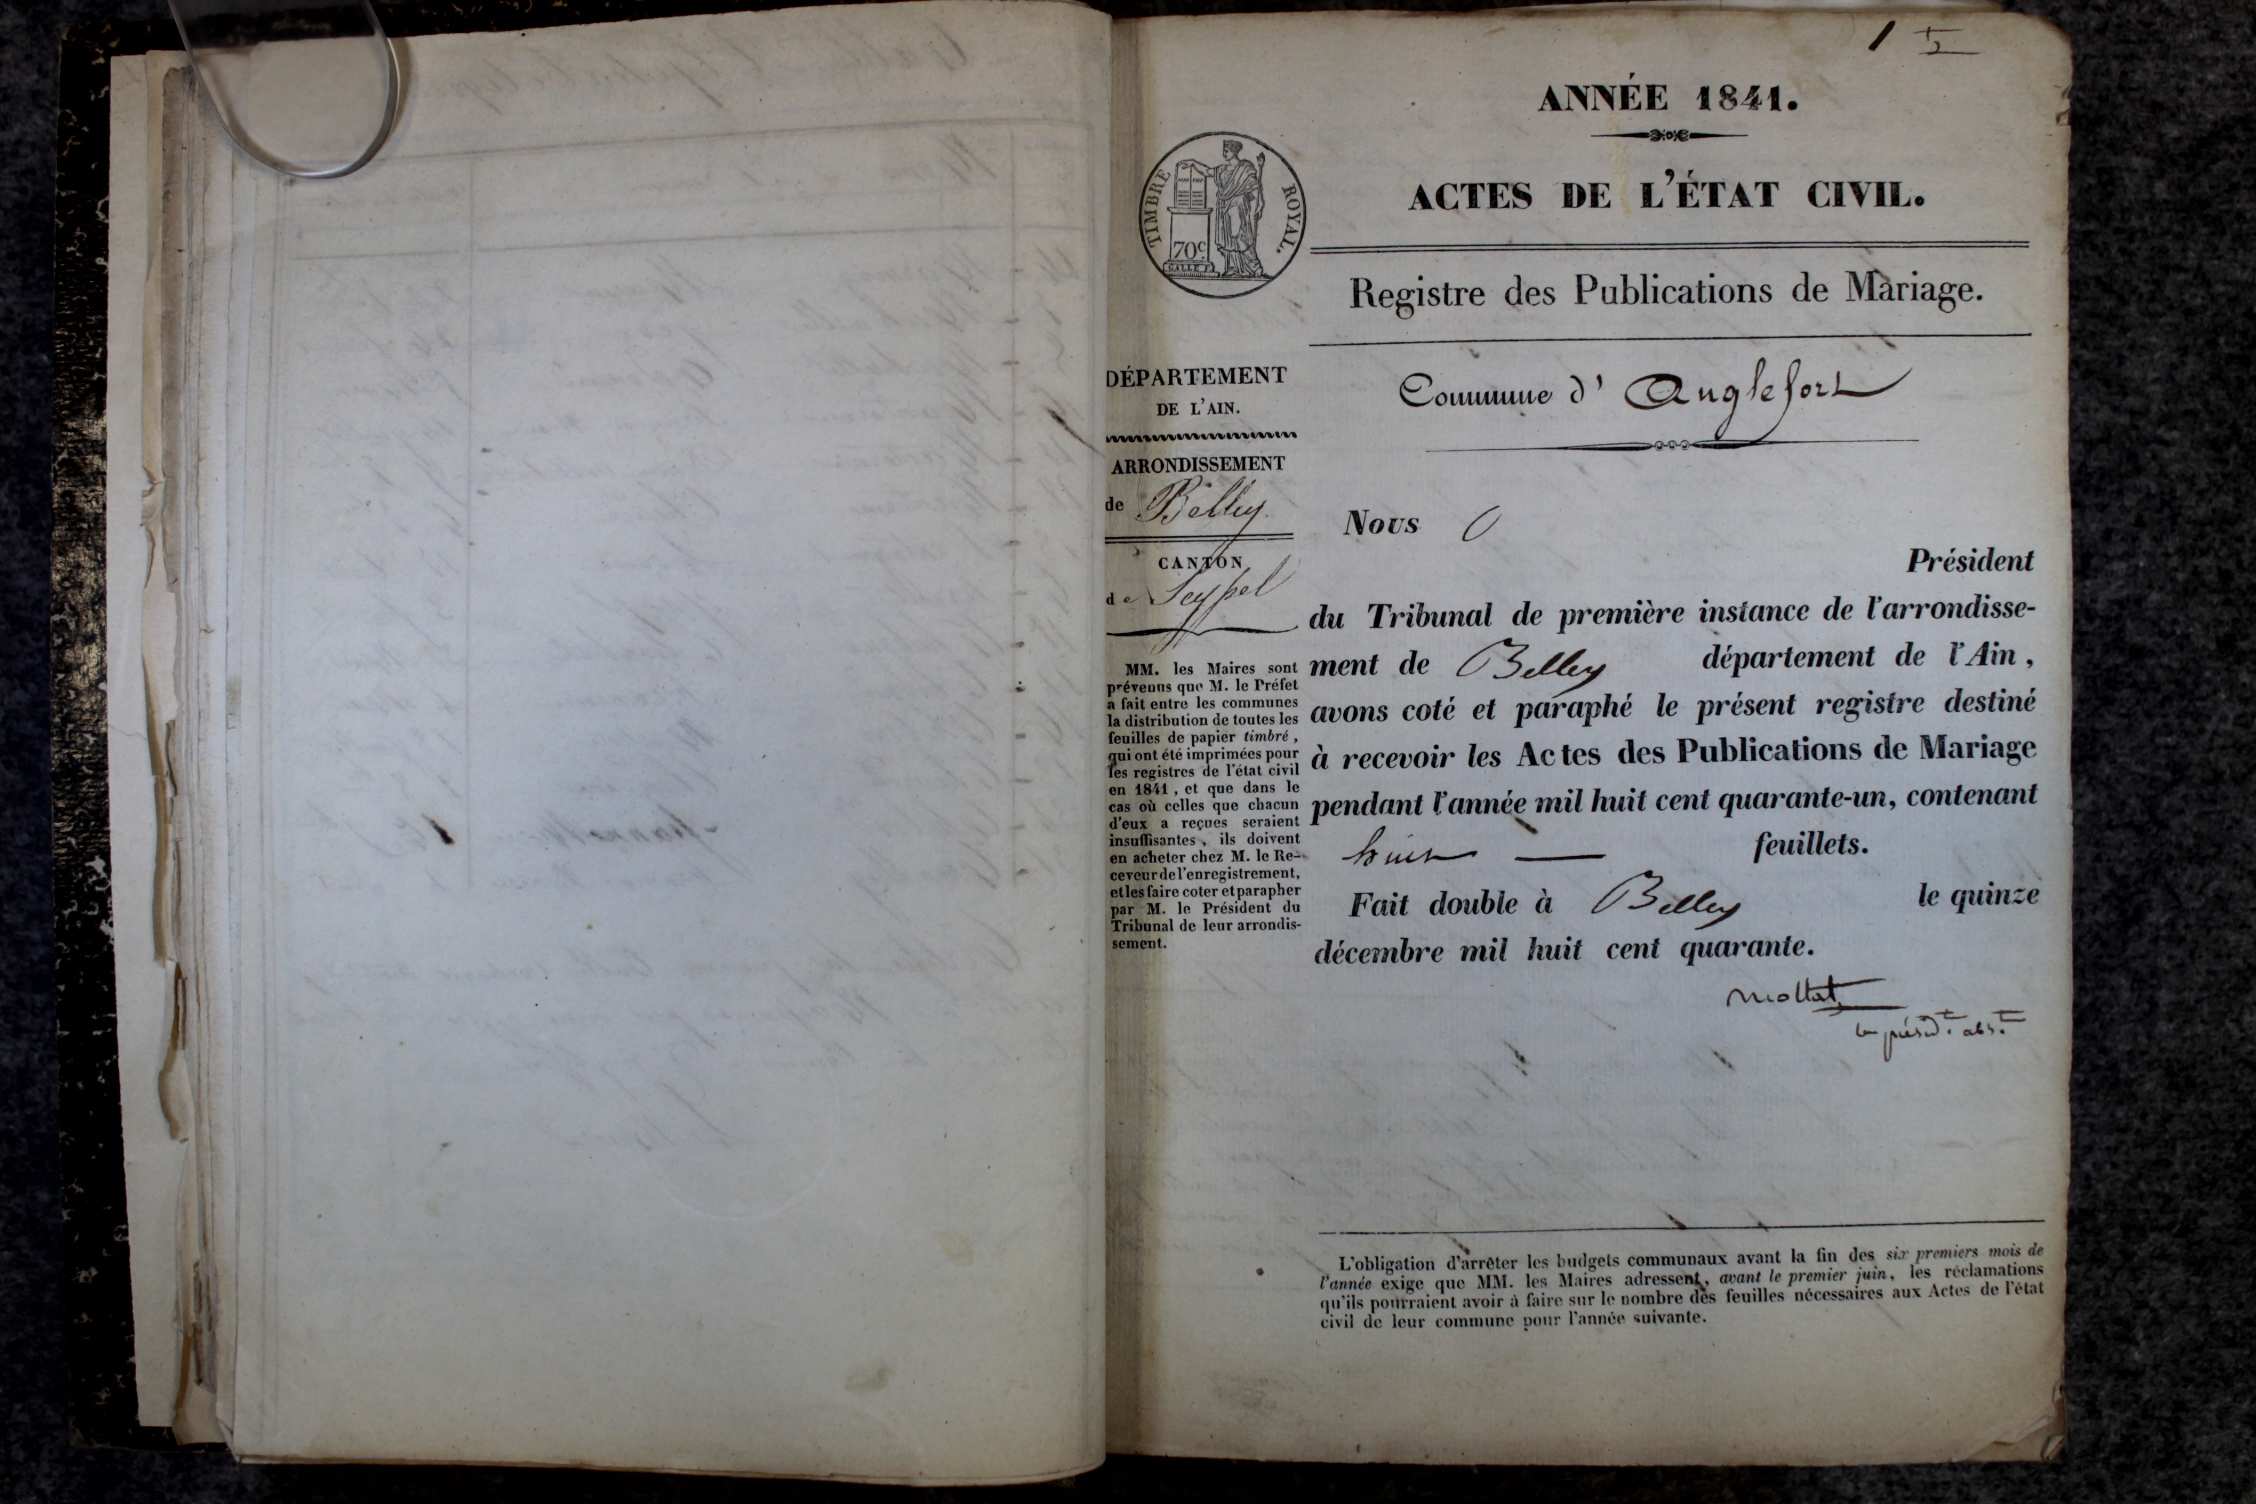 1
ANNÉE 1841.
ACTES DE L'ÉTAT CIVIL.
TIMBRE ROYAL.
70c
Registre des Publications de Mariage.
DÉPARTEMENT
DE L'AIN.
ARRONDISSEMENT
de Belley
CANTON
de Seyssel
MM. les Maires sont
prévenus que M. le Préfet
a fait entre les communes
la distribution de toutes les
feuilles de papier timbré,
qui ont été imprimées pour
les registres de l'état civil
en 1841, et que dans le
cas où celles que chacun
d'eux a reçues seraient
insuffisantes, ils doivent
en acheter chez M. le Re-
ceveur de l'enregistrement,
et les faire coter et parapher
par M. le Président du
Tribunal de leur arrondis-
sement.
Commune d'Anglefort
Nous
Président
du Tribunal de première instance de l'arrondisse-
ment de Belley département de l'Ain,
avons coté et paraphé le présent registre destiné
à recevoir les Actes des Publications de Mariage
pendant l'année mil huit cent quarante-un, contenant
huit — feuillets.
Fait double à Belley le quinze
décembre mil huit cent quarante.
Mollat
le présidt. abst.
L'obligation d'arrêter les budgets communaux avant la fin des six premiers mois de
l'année exige que MM. les Maires adressent, avant le premier juin, les réclamations
qu'ils pourraient avoir à faire sur le nombre des feuilles nécessaires aux Actes de l'état
civil de leur commune pour l'année suivante.